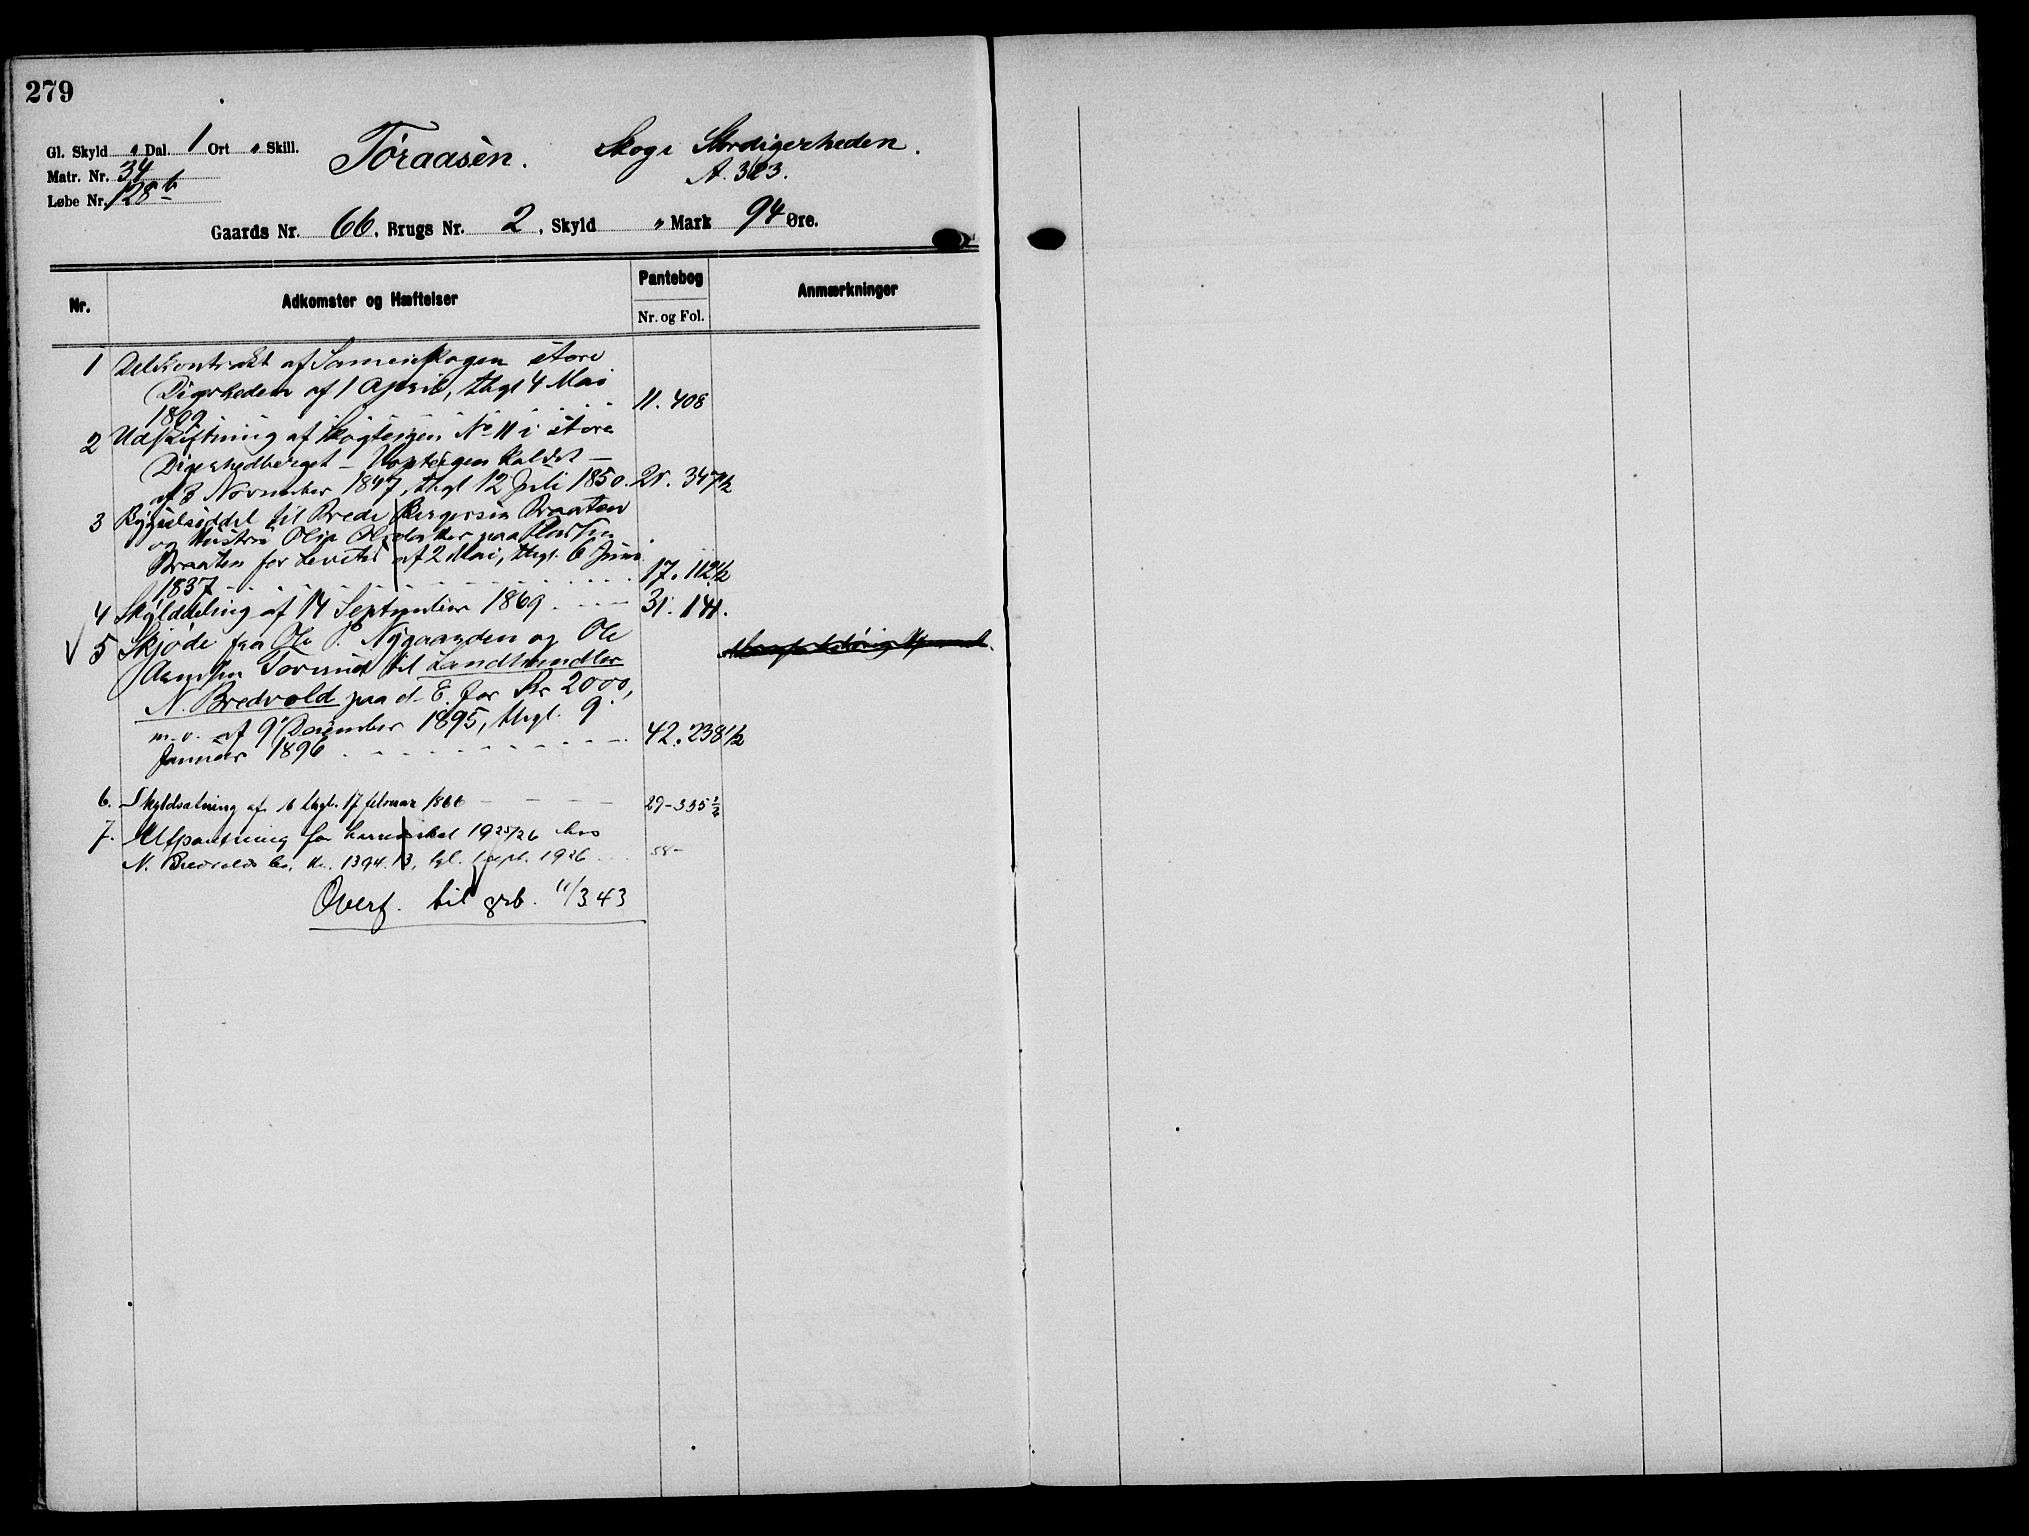 279
Gl. Skyld " Dal. 1 Ort " Skill.
Matr. Nr. 34
Løbe Nr. 128 b
Tøraasèn. Skog i Stordigerheden.
A. 323.
Gaards Nr. 66, Brugs Nr. 2, Skyld " Mark 94 Øre.
Nr. Adkomster og Hæftelser Pantebog Anmærkninger
Nr. og Fol.
1 Delekontrakt af Sameieskogen store
Digerheden af 1 April, thgl 4 Mai
1809 11. 408
2 Udskiftning af Skogteigen No 11 i store
Digerhedberget - kaldet -
af 3 November 1847, thgl 12 Juli 1850. 21. 347 1/2
3 Bygselseddel til Brede Bergersen Braaten
og Hustru paa
Braaten for Levetid af 2 Mai, thgl. 6 Juni
1837 17. 112 1/2
4 Skylddeling af 14 September 1869 31. 141.
5 Skjøde fra Ole P. Nygaarden og Ole
Torerud til Landhandler
N. Bredvold paa d. E. for Kr 2000,
m. v. af 9 December 1895, thgl. 9
Januar 1896 42. 238 1/2
6. Skyldsætning af 16 thgl. 17 februar 1866 29-335 1/2
7. Utpantning for herredsskat 1925/26 hos
N. Bredvolds bo, kr. 1394.13, tgl. 1 sept. 1926 58-
Overf. til grb. 11/3 43